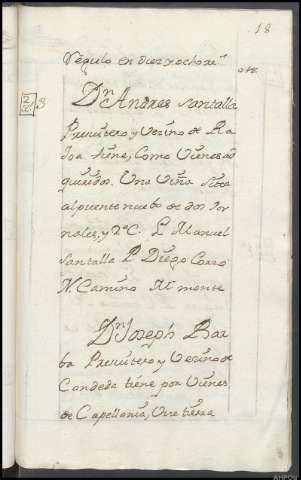 18
Regulo en diez y ocho rs.
018.
2ª C. 3
Dn Andres Santalla
Presvitero y Vezino de Ra
tiene, Como Vienes ad
queridos. Una Viña sita
al puente nuebo de dos jor
nales, y 2ª C. L. Manuel
Santalla P. Diego Corzo
N. Camino M. monte
Dn Joseph Bar
ba Presvitero y Vezino de
Candeda tiene por Vienes
de Capellania, Una tierra